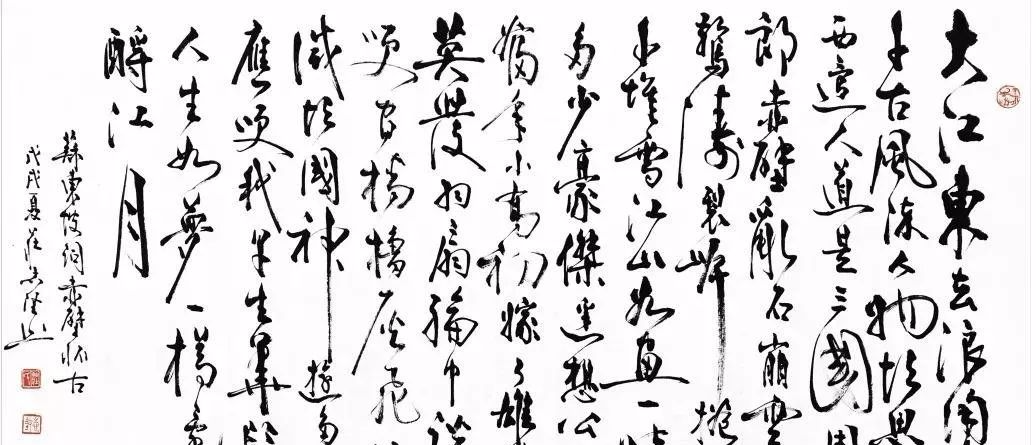 大江東去浪淘
千古風流人物故壘
西邊人道是三國周
郎赤壁亂石崩雲
驚濤裂岸捲
千堆雪江山如畫一時
多少豪傑遙想公
當年小喬初嫁了雄
英發羽扇綸巾談
笑間檣櫓灰飛
滅故國神遊多
應笑我早生華髮
人生如夢一樽還
酹江月
蘇東坡詞赤壁怀古
戊戌夏莊